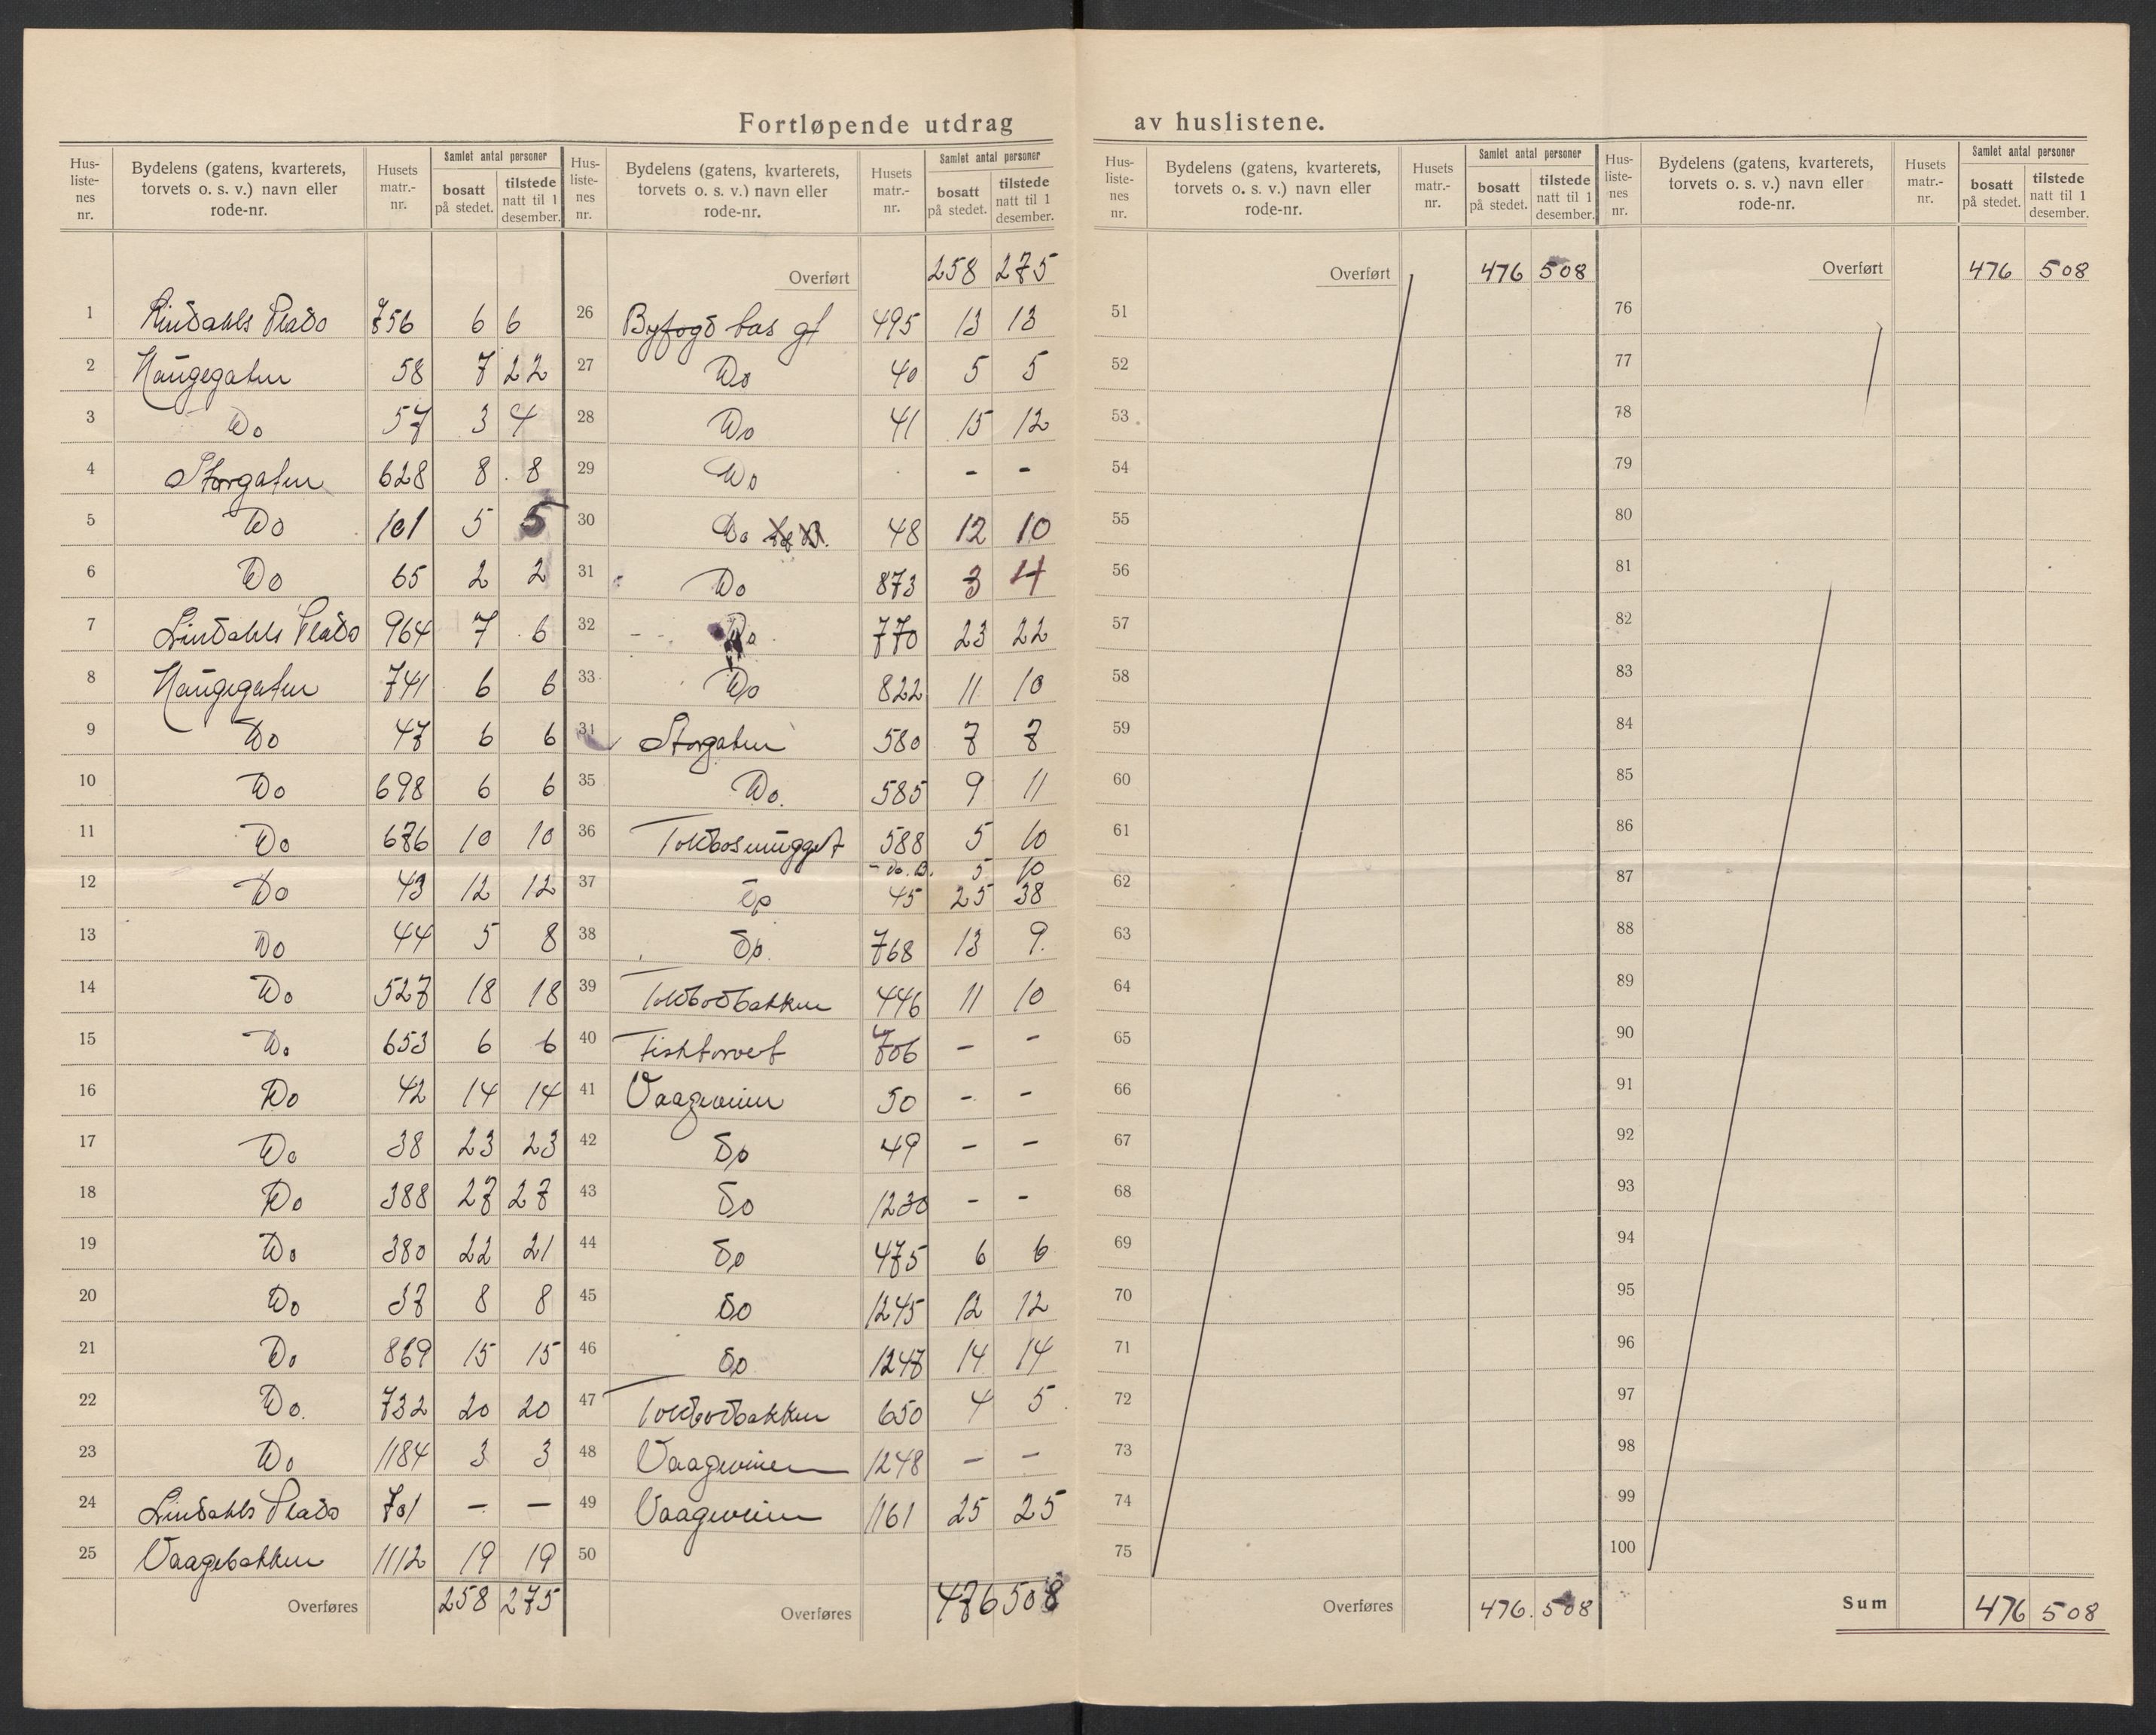 Fortløpende utdrag av huslistene.
Hus-liste-nes nr. | Bydelens (gatens, kvarterets, torvets o. s. v.) navn eller rode-nr. | Husets matr.-nr. | Samlet antal personer bosatt på stedet. | tilstede natt til 1 desember.
1 Lindahls Plads 756 6 6
2 Haugegaten 58 7 22
3 Do 57 3 4
4 Storgaten 628 8 8
5 Do 101 5 5
6 Do 65 2 2
7 Lindahls Plads 964 7 6
8 Haugegaten 741 6 6
9 Do 47 6 6
10 Do 698 6 6
11 Do 676 10 10
12 Do 43 12 12
13 Do 44 5 8
14 Do 527 18 18
15 Do 653 6 6
16 Do 42 14 14
17 Do 38 23 23
18 Do 388 27 27
19 Do 380 22 21
20 Do 37 8 8
21 Do 869 15 15
22 Do. 732 20 20
23 Do 1184 3 3
24 Lindahls Plads 701 – –
25 Vaagebakken 1112 19 19
Overføres 258 275
Hus-liste-nes nr. | Bydelens (gatens, kvarterets, torvets o. s. v.) navn eller rode-nr. | Husets matr.-nr. | Samlet antal personer bosatt på stedet. | tilstede natt til 1 desember.
Overført 258 275
26 Byfogd 495 13 13
27 Do 40 5 5
28 Do 41 15 12
29 Do - -
30 Do 48 12 10
31 Do 873 3 4
32 Do 770 23 22
33 Do 822 11 10
34 Storgaten 580 7 7
35 Do. 585 9 11
36 Toldbosmugget 588 5 10
- Do. B. 5 10
37 Do 45 25 38
38 Do 768 13 9.
39 Toldbodbakken 446 11 10
40 Fisktorvet 706 – –
41 Vaageveien 50 - -
42 Do 49 – –
43 Do 1230 - -
44 Do 475 6 6
45 Do 1245 12 12
46 Do 1247 14 14
47 Toldbodbakken 650 4 5
48 Vaageveien 1248 – –
49 Vaageveien 1161 25 25
50
Overføres 476 508
Hus-liste-nes nr. | Bydelens (gatens, kvarterets, torvets o. s. v.) navn eller rode-nr. | Husets matr.-nr. | Samlet antal personer bosatt på stedet. | tilstede natt til 1 desember.
Overført 476 508
51
52
53
54
55
56
57
58
59
60
61
62
63
64
65
66
67
68
69
70
71
72
73
74
75
Overføres 476. 508
Hus-liste-nes nr. | Bydelens (gatens, kvarterets, torvets o. s. v.) navn eller rode-nr. | Husets matr.-nr. | Samlet antal personer bosatt på stedet. | tilstede natt til 1 desember.
Overført 476 508
76
77
78
79
80
81
82
83
84
85
86
87
88
89
90
91
92
93
94
95
96
97
98
99
100
Sum 476 508